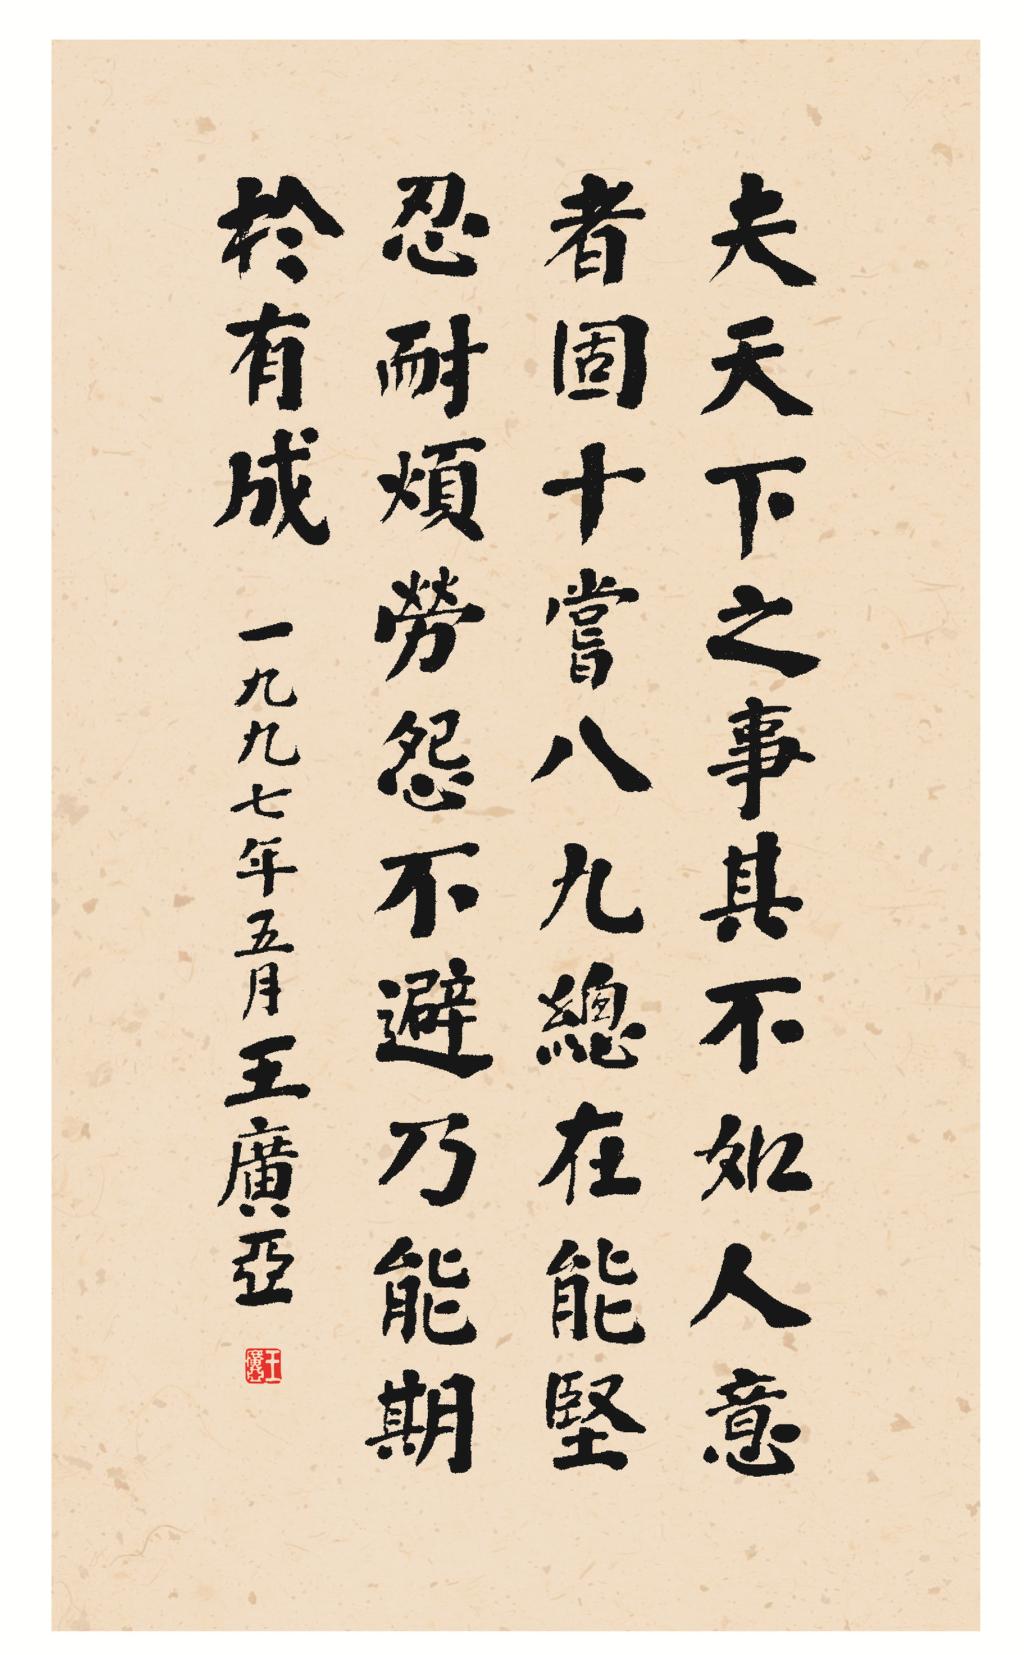 夫天下之事其不如人意
者固十嘗八九總在能堅
忍耐煩勞怨不避乃能期
於有成
一九九七年五月王廣亞
王廣亞